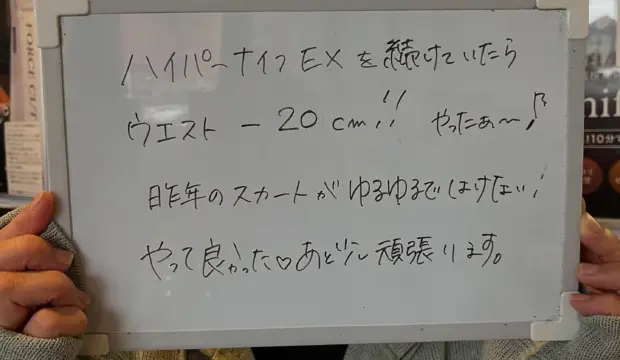 ハイパーナイフEXを続けていたら
ウエスト －20cm!! やったぁ〜!
昨年のスカートがゆるゆるではけない!
やって良かった♡あと少し頑張ります。
FORCE CUT